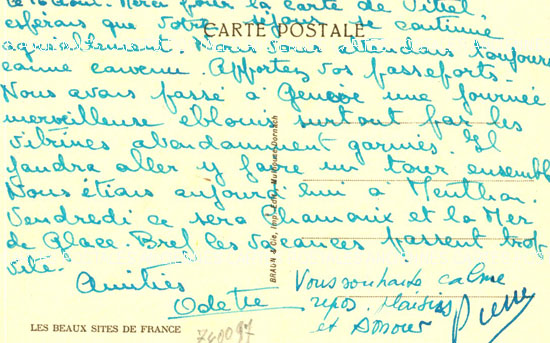 ce 16 Août. Merci pour la carte de Vittel,
espérons que votre séjour se continue
CARTE POSTALE
agréablement. Nous vous attendons toujours
comme convenu. Apportez vos passeports.
Nous avons passé à Genève une journée
merveilleuse éblouis surtout par les
vitrines abondamment garnies. Il
faudra aller y faire un tour ensemble
Nous étions aujourd'hui à Menthon.
Vendredi ce sera Chamonix et la Mer
de Glace. Bref les vacances passent trop
vite.
Amitiés
Odette
Vous souhaite calme
repos, plaisirs
et Amour
Pierre
BRAUN & Cie, Imp.-Edit., Mulhouse-Dornach
LES BEAUX SITES DE FRANCE